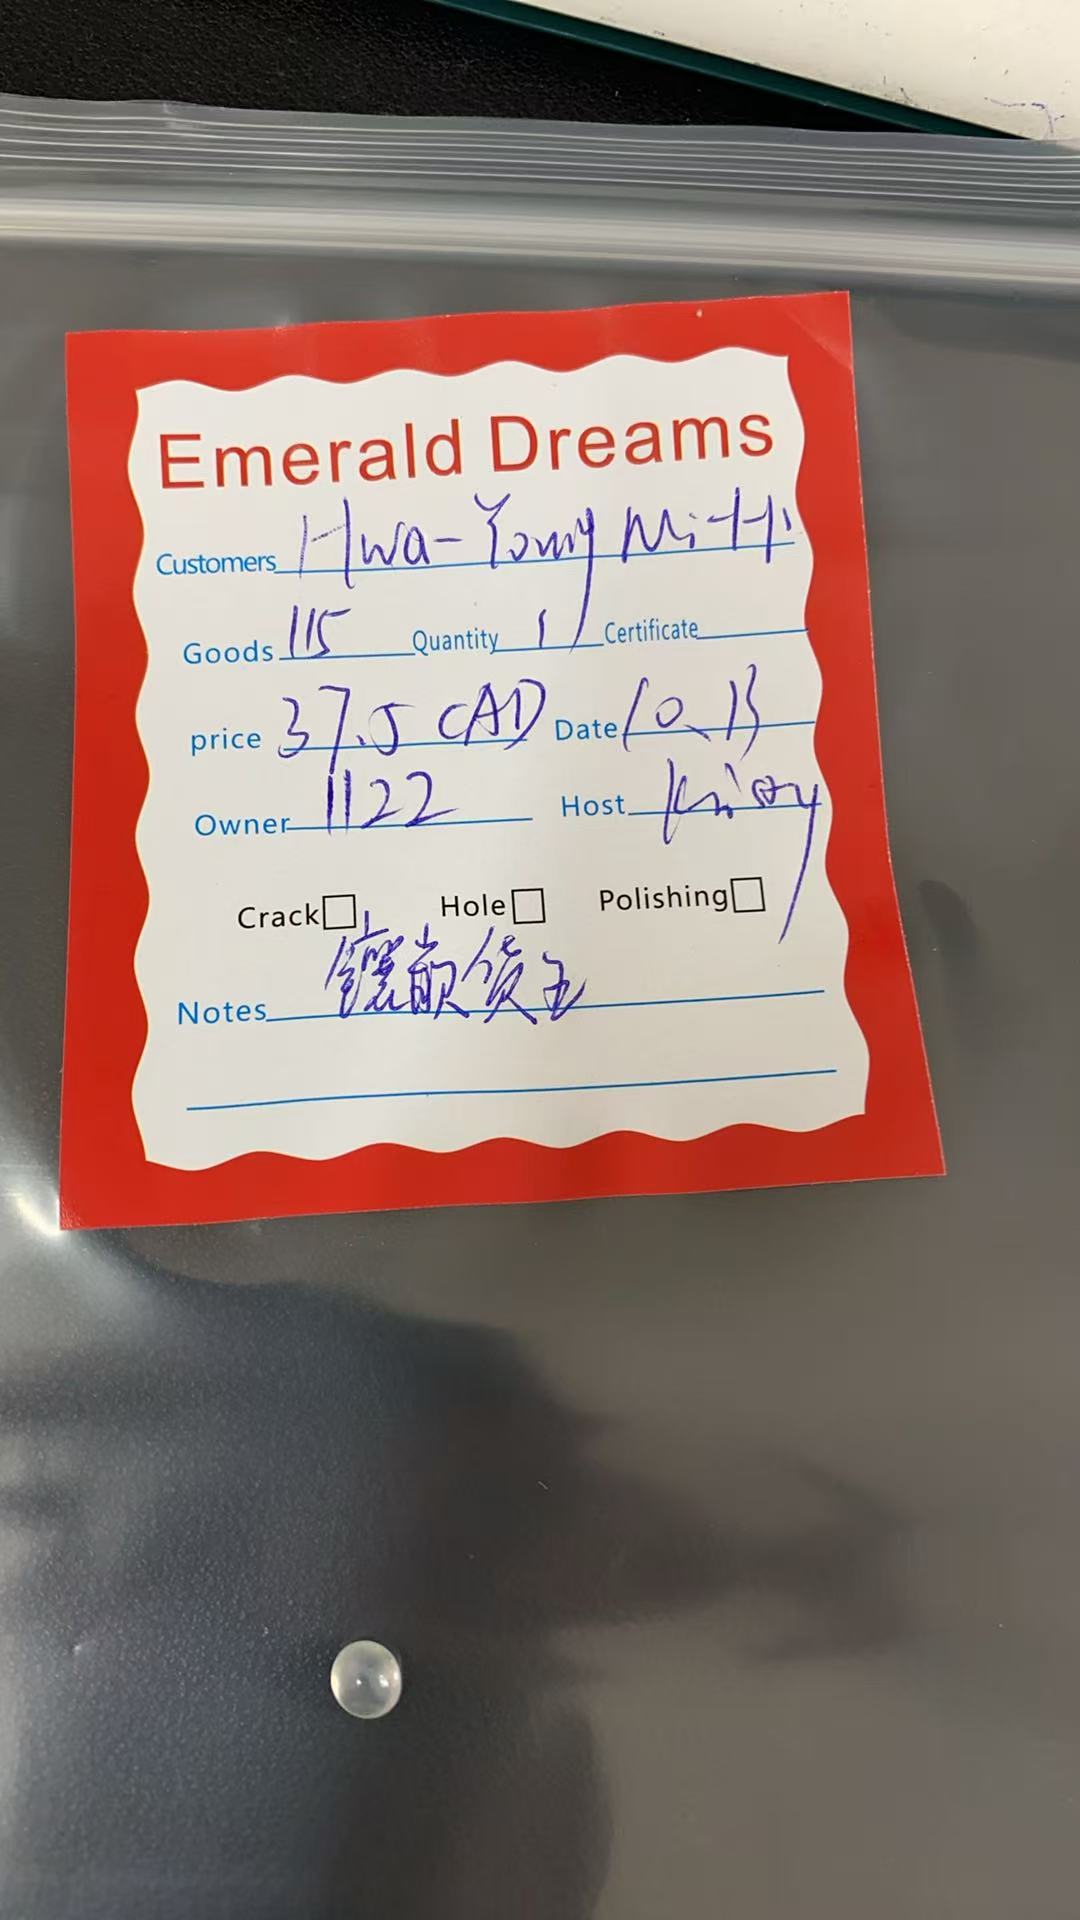 Emerald Dreams
Customers Hwa-Young
Goods 115 Quantity 1 Certificate
price 37.5 CAD Date 10.13
Owner 1122 Host
Crack Hole Polishing
Notes 镶嵌货主